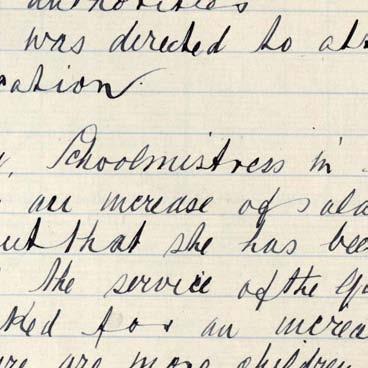 authorities
was directed to att
cation.
Schoolmistress in
an increase of sala
ut that she has bee
the service of the Gu
ked for an increa
ere are more children